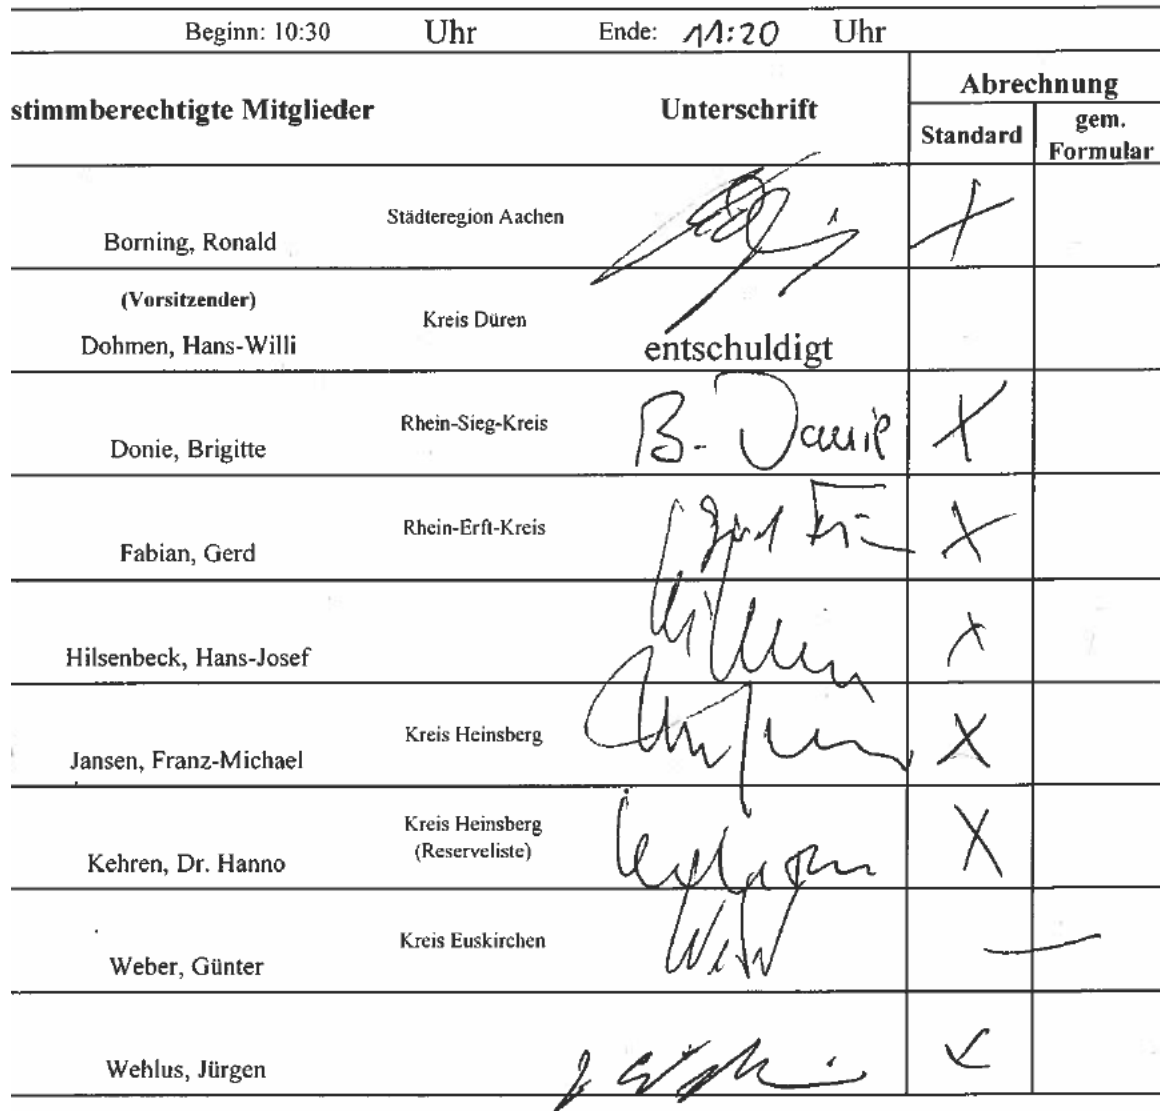 Beginn: 10:30 Uhr Ende: 11:20 Uhr
Abrechnung
stimmberechtigte Mitglieder Unterschrift
Standard gem. Formular
Borning, Ronald Städteregion Aachen
(Vorsitzender)
Dohmen, Hans-Willi Kreis Düren entschuldigt
Donie, Brigitte Rhein-Sieg-Kreis B. Donie X
Fabian, Gerd Rhein-Erft-Kreis X
Hilsenbeck, Hans-Josef X
Jansen, Franz-Michael Kreis Heinsberg X
Kehren, Dr. Hanno Kreis Heinsberg X
(Reserveliste)
Weber, Günter Kreis Euskirchen —
Wehlus, Jürgen